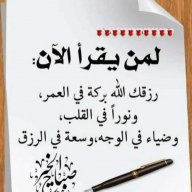 لمن يقرأ الآن:
رزقك الله بركة في العمر،
ونوراً في القلب،
وضياء في الوجه،وسعة في الرزق
صباح الخير